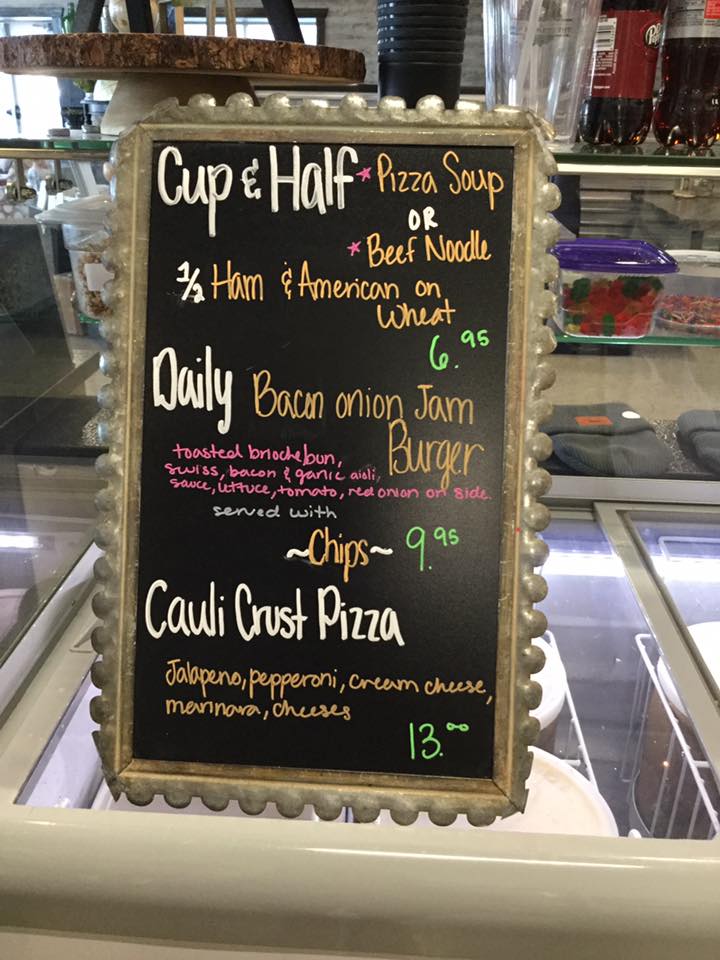 Cup & Half * Pizza Soup
OR
* Beef Noodle
1/2 Ham & American on
Wheat
6.95
Daily Bacon onion Jam
Burger
toasted brioche bun,
swiss, bacon & garlic aioli,
sauce, lettuce, tomato, red onion on side.
served with
~Chips~ 9.95
Cauli Crust Pizza
Jalapeno, pepperoni, cream cheese,
marinara, cheeses
13.00